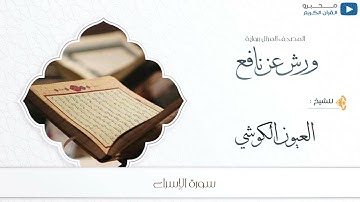 محبرو
القرآن الكريم
المصحف المرتل برواية
ورش عن نافع
للشيخ :
العيون الكوشي
سورة الإسراء